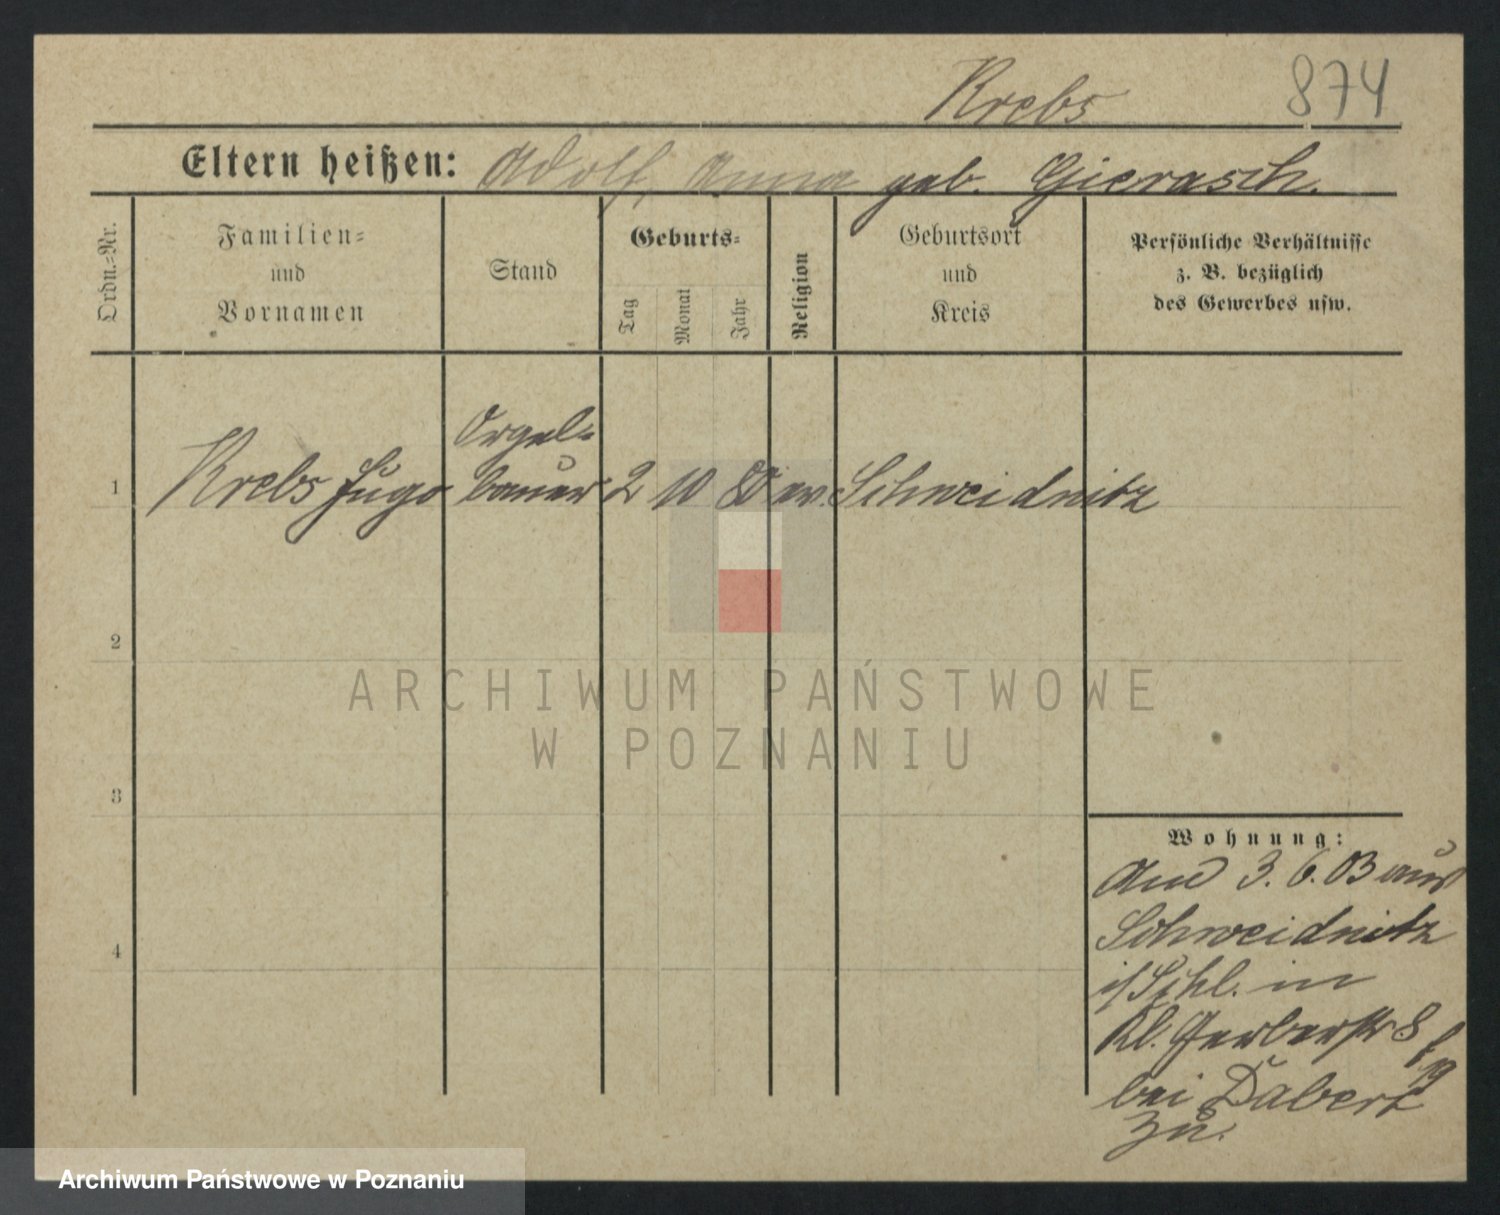 Krebs 874
Eltern heißen: Adolf, Anna geb. Gierasch.
Ordn.-Nr.
Familien-
und
Vornamen
Stand
Geburts-
Tag
Monat
Jahr
Religion
Geburtsort
und
Kreis
Persönliche Verhältnisse
z. B. bezüglich
des Gewerbes usw.
1 Krebs Hugo Orgel-
bauer 2 10 80 ev. Schweidnitz
2
3
4
Wohnung:
Am 3. 6. 03 aus
Schweidnitz
i/Schl. in
Kl. Gerberstr 8
bei Dabert
zu.
ARCHIWUM PAŃSTWOWE
W POZNANIU
Archiwum Państwowe w Poznaniu